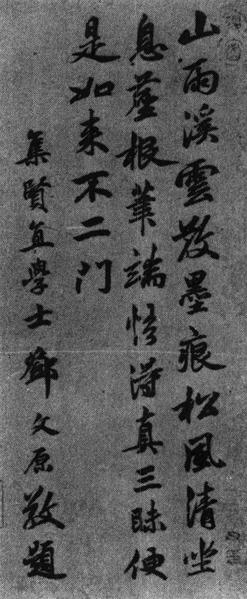 山雨溪雲散墨痕松風清坐
息塵根筆端悟得真三昧便
是如来不二门
集賢直學士鄧文原敬題